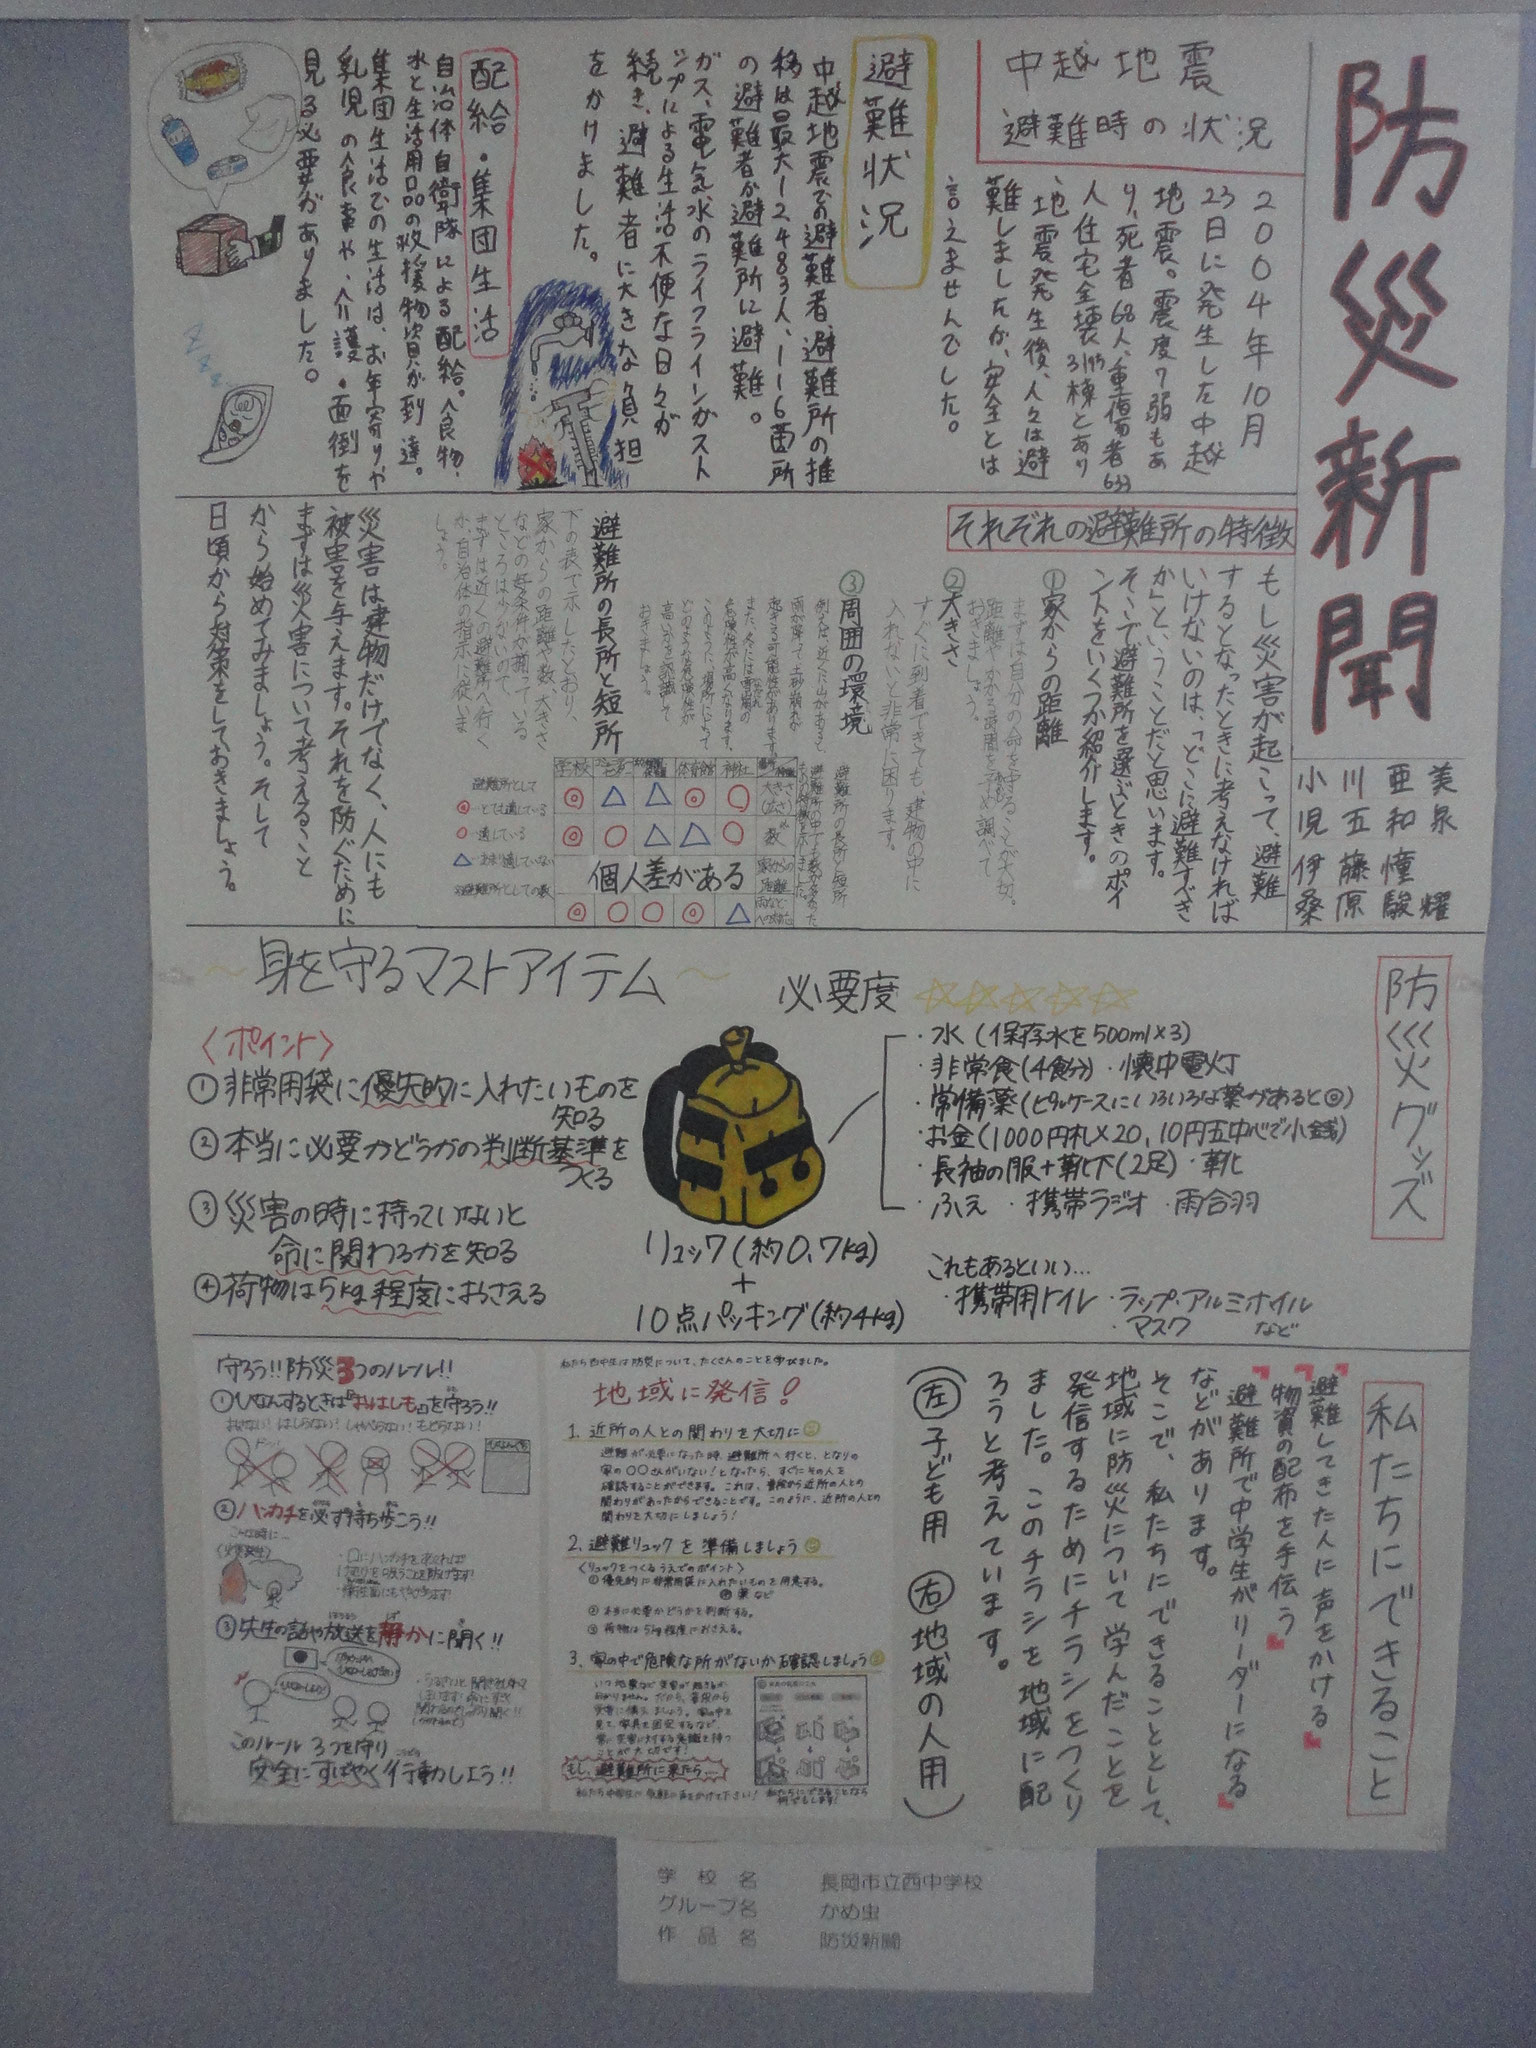 防災新聞
中越地震
避難時の状況
2004年10月
23日に発生した中越
地震。震度7弱もあ
り、死者68人、重傷者633
人住宅全壊3175棟とあり
、地震発生後、人々は避
難しましたが、安全とは
言えませんでした。
避難状況
中越地震での避難者、避難所の推
移は最大12483人、116箇所
の避難者が避難所に避難。
ガス、電気、水のライフラインがスト
ップによる生活不便な日々が
続き、避難者に大きな負担
をかけました。
配給・集団生活
自治体自衛隊による配給。食物、
水と生活用品の救援物資が到達。
集団生活での生活は、お年寄りや
乳児の食事や、介護・面倒を
見る必要がありました。
zzzz
それぞれの避難所の特徴
もし災害が起こって、避難
するとなったときに考えなければ
いけないのは、「どこに避難すべき
か」ということだと思います。
そこで避難所を選ぶときのポイ
ントをいくつか紹介します。
①家からの距離
まずは自分の命を守ることが大切。
距離やかかる時間を予め調べて
おきましょう。
②大きさ
すぐに到着できても、建物の中に
入れないと非常に困ります。
③周囲の環境
例えば、近くに山があると、
雨が降って土砂崩れが
起きる可能性があります。
また、冬には雪崩の
危険性が高くなります。
このように、場所によって
どのような危険性が
高いかを認識して
おきましょう。
避難所の長所と短所
下の表で示したとおり、
家からの距離や数、大きさ
などの好条件が揃っている
ところは少ないので、
まずは近くの避難所へ行く
か、自治体の指示に従いま
しょう。
災害は建物だけでなく、人にも
被害を与えます。それを防ぐために
まずは災害について考えること
から始めてみましょう。そして
日頃から対策をしておきましょう。
避難所の長所と短所
学校 体育館 神社
大きさ(広さ) ◎ △ △ ◎ ○
数 ◎ ○ △ △ ○
家からの距離 個人差がある
◎ ○ ○ ◎ △
避難所として
◎…とても適している
○…適している
△…あまり適していない
※避難所としての数
防災グッズ
~身を守るマストアイテム~
必要度 ☆☆☆☆☆
<ポイント>
①非常用袋に優先的に入れたいものを
知る
②本当に必要かどうかの判断基準を
つくる
③災害の時に持っていないと
命に関わるかを知る
④荷物は5kg程度におさえる
リュック(約0.7kg)
+
10点パッキング(約4kg)
・水(保存水を500ml×3)
・非常食(4食分)・懐中電灯
・常備薬(ピルケースにいろいろな薬があると◎)
・お金(1000円札×20,10円玉中心で小銭)
・長袖の服+靴下(2足)・靴
・ふえ ・携帯ラジオ ・雨合羽
これもあるといい…
・携帯用トイレ ・ラップ・アルミホイル
・マスク など
私たちにできること
「避難してきた人に声をかける」
「物資の配布を手伝う」
「避難所で中学生がリーダーになる」
などがあります。
そこで、私たちにできることとして、
地域に防災について学んだことを
発信するためにチラシをつくり
ました。このチラシを地域に配
ろうと考えています。
(左子ども用 右地域の人用)
守ろう!!防災3つのルール!!
①ひなんするときは「おはしも」を守ろう!!
おさない!はしらない!しゃべらない!もどらない!
②ハンカチを必ず持ち歩こう!!
こんな時に…
(火災発生)
③先生の話や放送を静かに聞く!!
このルール3つを守り
安全にすばやく行動しよう!!
私たち西中生は防災について、たくさんのことを学びました。
地域に発信!
1.近所の人との関わりを大切に
避難が必要になった時、避難所へ行くと、となりの
家の〇〇さんがいない!となったら、すぐにその人を
確認することができます。これは、普段から近所の人との
関わりがあったからできることです。このように、近所の人との
関わりを大切にしましょう!
2.避難リュックを準備しましょう
<リュックをつくるうえでのポイント>
①優先的に非常用袋に入れたいものを用意する。
薬など
②本当に必要かどうかを判断する。
③荷物は5kg程度におさえる。
3.家の中で危険な所がないか確認しましょう
もし、避難所に来たら…
学校名 長岡市立西中学校
グループ名 かめ虫
作品名 防災新聞